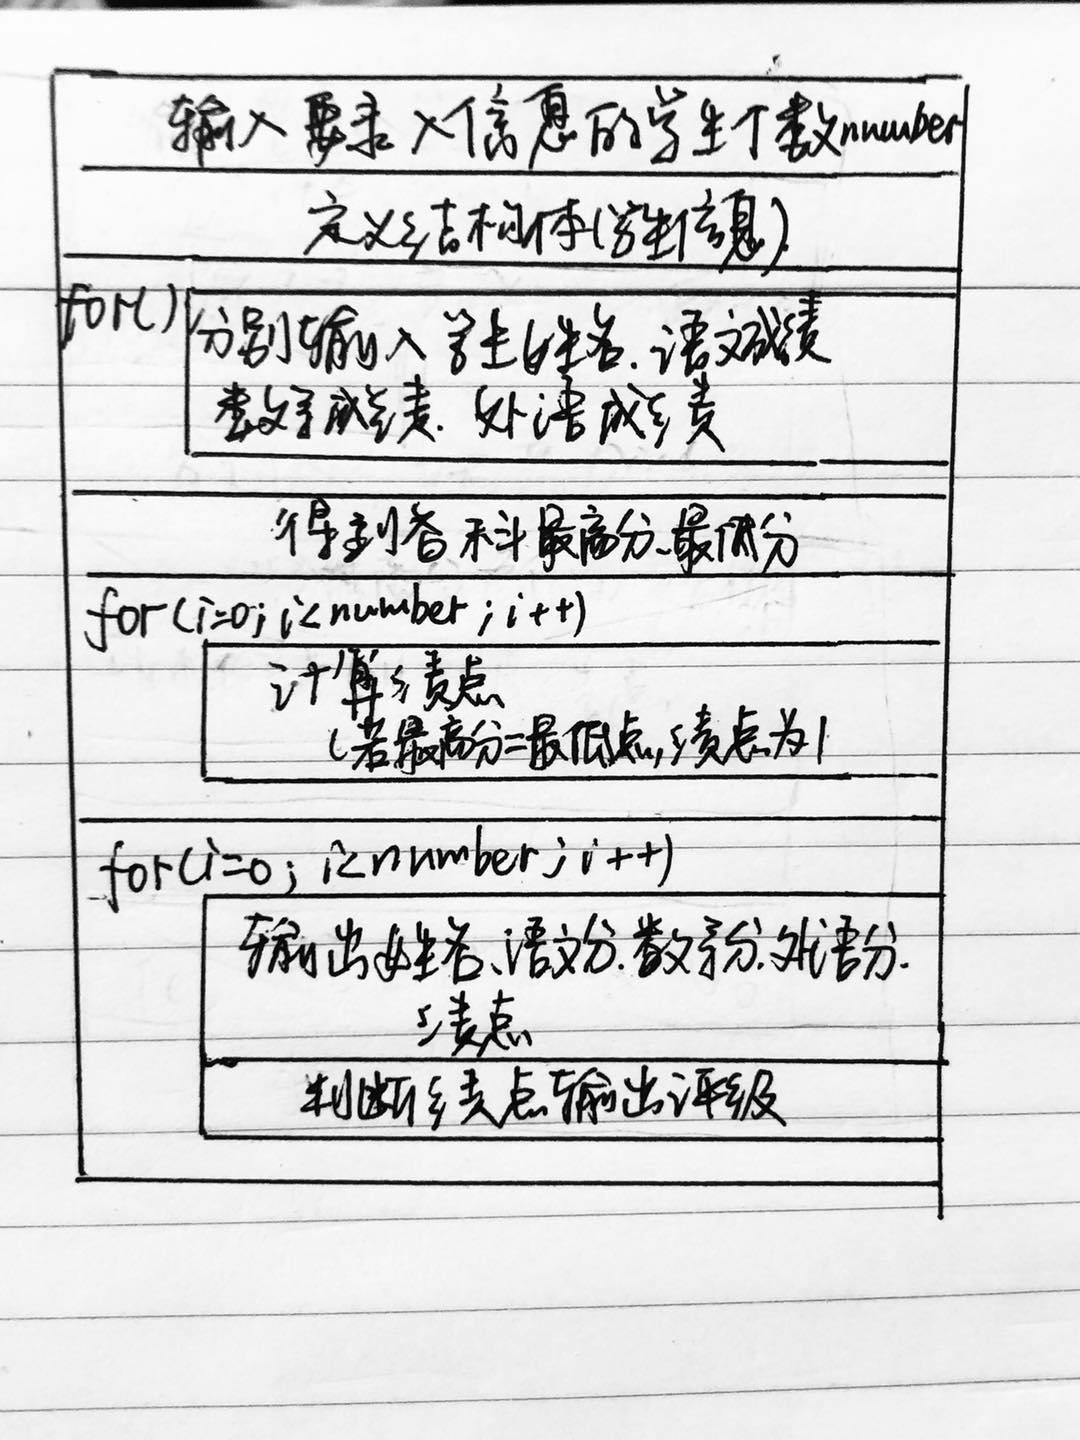 输入要录入信息的学生个数nnumber
定义结构体(学生信息)
for()
分别输入学生姓名、语文成绩
数学成绩、外语成绩
得到各科最高分、最低分
for(i=0;i<number;i++)
计算绩点
(若最高分=最低点,绩点为1
for(i=0;i<number;i++)
输出姓名、语文分、数学分、外语分、
绩点
判断绩点输出评级